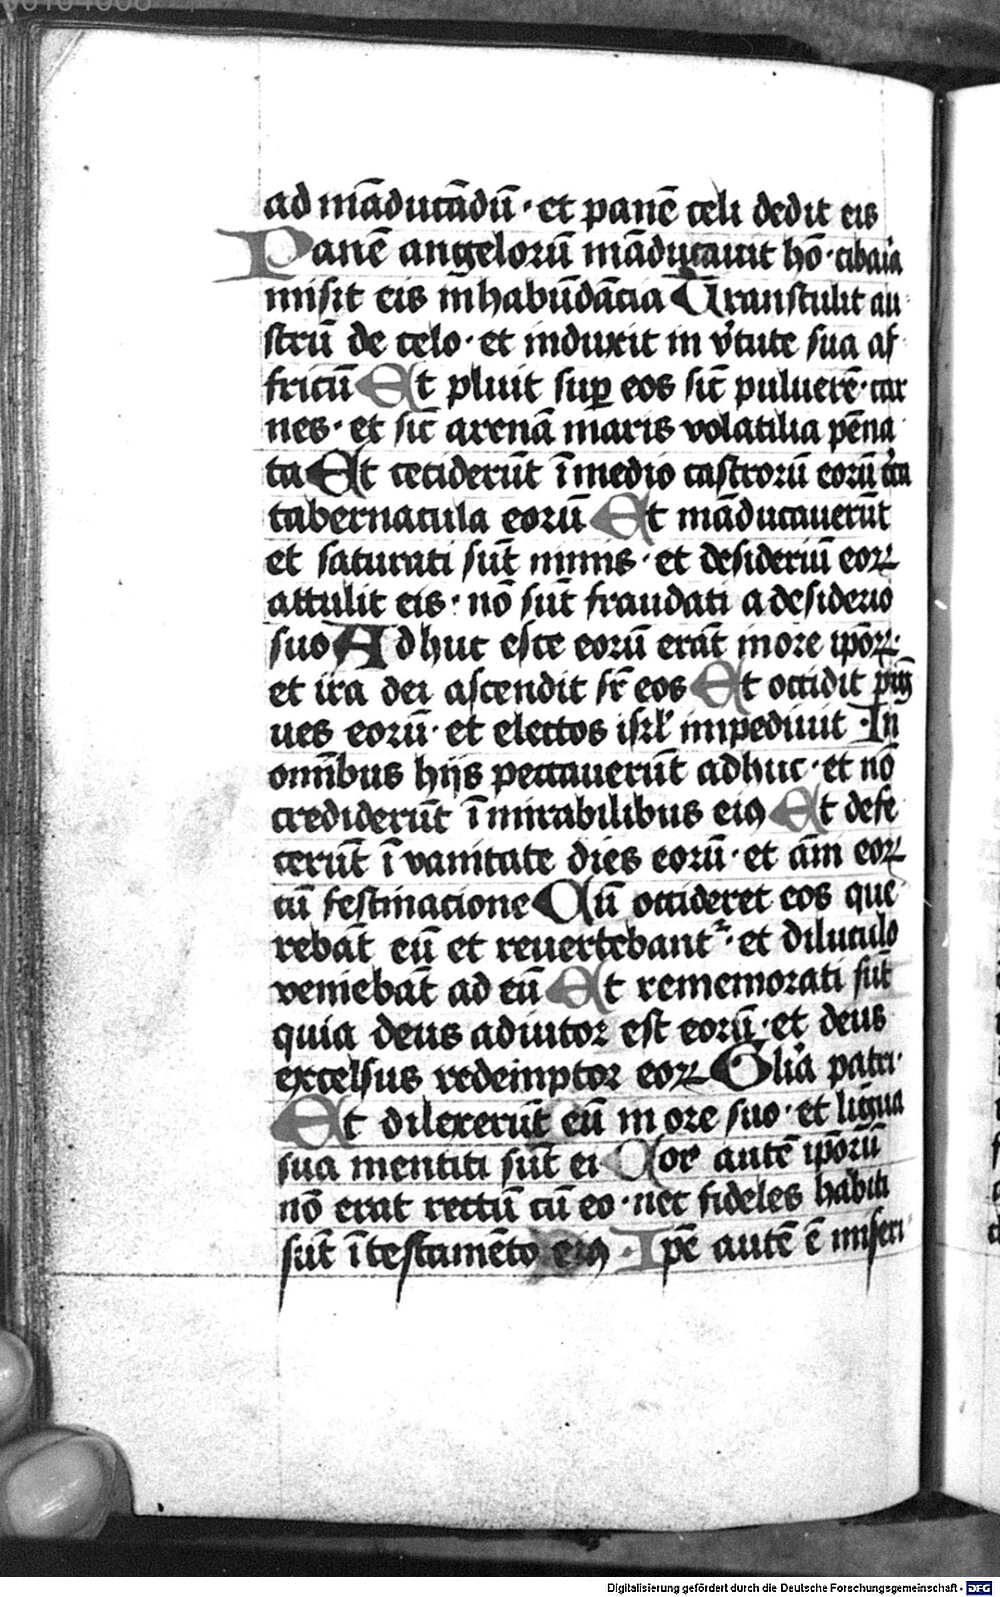 ad māducādū · et panē celi dedit eis
Panē angelorū māducauit hō · cibaia
misit eis in habūdācia Transtulit au
strū de celo · et induxit in v̾tute sua af
fricū Et pluit suꝑ eos sic̄ puluerē · car
nes · et sic̄ arenā maris volatilia pēna
ta Et ceciderūt ī medio castrorū eorū c̾ca
tabernacula eorū Et māducauerūt
et saturati sūt nimis · et desideriū eoꝝ
attulit eis · nō sūt fraudati a desiderio
suo Adhuc esce eorū erāt in ore ip̄oꝝ ·
et ira dei ascendit sr̄ eos Et occidit pīg
ues eorū · et electos isrl̓ impediuit · In
omībus hijs peccauerūt adhuc · et nō
crediderūt ī mirabilibus eiꝰ Et defe
cerūt ī vanitate dies eorū · et ām eoꝝ
cū festinacione Cū occideret eos que
rebāt eū et reuertebant᷑ · et diluculo
veniebāt ad eū Et rememorati sūt
quia deus adiutor est eorū · et deus
excelsus redemptor eoꝝ Glīa patri ·
Et dilexerūt eū in ore suo · et ligua
sua mentiti sūt ei Cor autē ip̄orū
nō erat rectū cū eo · nec fideles habiti
sūt ī testamēto eiꝰ · Ip̄e autē ē miseri
Digitalisierung gefördert durch die Deutsche Forschungsgemeinschaft - DFG